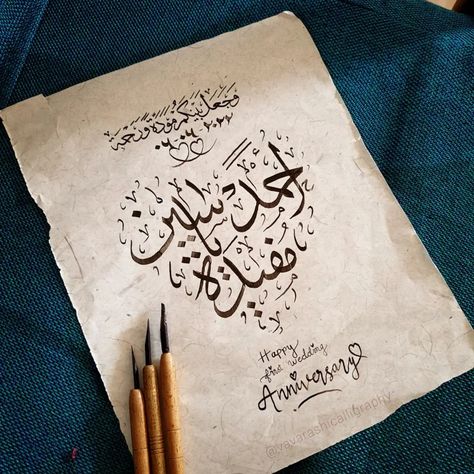 وَجَعَلَ بَيْنَكُمْ مَوَدَّةً وَرَحْمَةً
٠٦.٠٦.٢٠٢٢
أحمد ياسين
مفيدة
Happy
first wedding
Anniversary
@vavarashicalligraphy